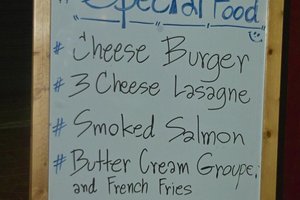 # Special Food
# Cheese Burger
# 3 Cheese Lasagne
# Smoked Salmon
# Butter Cream Groupe
and French Fries